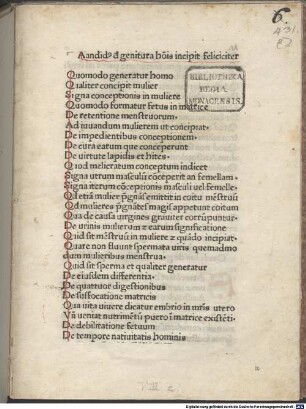 6.
431.
Aandidꝰ d genitura hoĩs incipit feliciciter
BIBLIOTHECA
REGIA
MONACENSIS.
Quomodo generatur homo
Qualiter concipit mulier
Signa conceptionis in muliere
Quomodo formatur fetus in matrice
De retentione menstruorum.
Ad iuuandum mulierem ut concipiat
De impedientibus conceptionem
De cura earum que conceperunt
De uirtute lapidis ethites
Quod melicratum conceptum indicet
Signa utrum masculũ cõceperit an femellam
Signa iterum cõceptionis masculi uel femelle
Qd etiã mulier p̃gnãs emittit in coitu mẽstruũ
Qd mulieres p̃gnãtes magis appetunt coitum
Qua de causa uirgines grauiter corrũpuntur
De urinis mulierum ⁊ earum significatione
Quid sit mẽstruũ in muliere ⁊ quãdo incipiat
Quare non fluunt spermata uiris quemadmo
dum mulieribus menstrua
Quid sit sperma et qualiter generatur
De eiusdem differentia
De quattuor digestionibus
De suffocatione matricis
Qua uita uiuere dicatur embrio in mr̃is utero
Vñ ueniat nutrimẽtũ puero ĩ matrice existẽti
De debilitatione fetuum
De tempore natiuitatis hominis